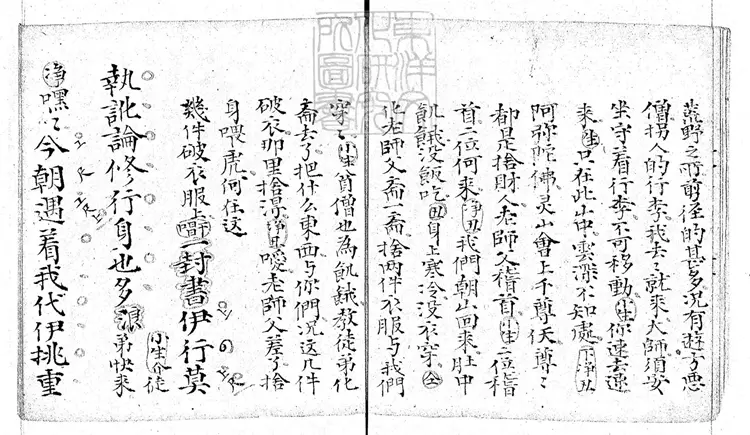 荒野之所前徑的甚多況有遊方惡
僧拐人的行李我去了就來大師須要
坐守着行李不可移動小生你速去速
來生只在此山中雲深不知處下淨丑
阿弥陀佛灵山會上千尊伏尊〻
都是捨財人老師父稽首小生二位稽
首二位何來淨丑我們朝山回來肚中
飢餓没飯吃丑身上寒冷没衣穿仝
化老師父斋一斋捨两件衣服与我們
穿〻小生貧僧也為飢餓教徒弟化
斋去了把什么東西与你們況这几件
破衣那里捨得淨丑噯老師父差了捨
身喂虎何在这
幾件破衣服上一封書伊行莫
執訛論修行身也多浪弟快來
小生介徒
淨嘿〻今朝遇着我代伊挑重